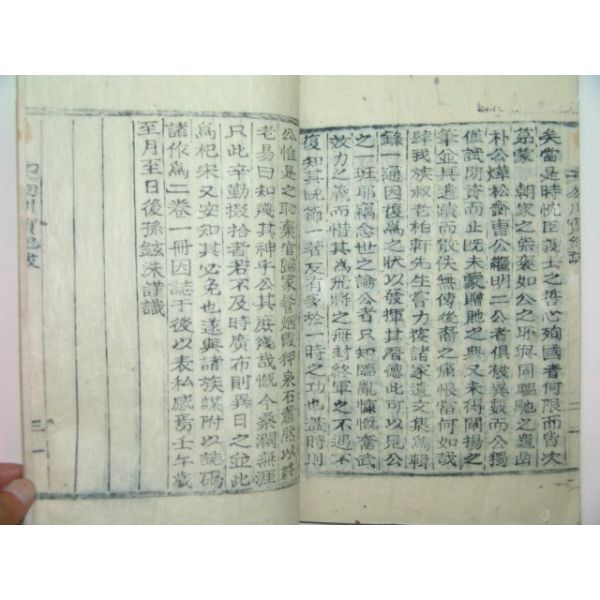 矣當是時忱臣義士之誓心殉國者何限而皆次
第蒙 朝家之崇褒如公之所與同驅馳之
朴公煒松齋曺公繼明二公者俱被異數而公獨
僅試勋資而止旣未蒙贈貤之典又未得闡揚之
筆金兵遺蹟而散佚無傳後裔之痛恨當何如哉
肆我族叔老柏軒先生嘗力搜諸家遺文集爲輯
錄一通因復爲之狀以發揮其潛德此可以見公
之一班耶竊念世之論公者只知臨亂慷慨奮武
效力之義而惜其爲飛將之無封終軍之不遇不
復知其晩節一著反有多於一時之功也蓋時則
公惟是之恥棄官歸家嘗烟霞押泉石蕭然以終
老易曰知幾其神乎公其庶幾哉慨今桑瀾無涯
只此辛勤掇拾者若不及時廣布則異日之並此
爲杞宋又安知其必免也遂與諸族謀附以誌碣
諸作爲二卷一冊因誌于後以表私感焉壬午歲
至月至日後孫鉉洙謹識